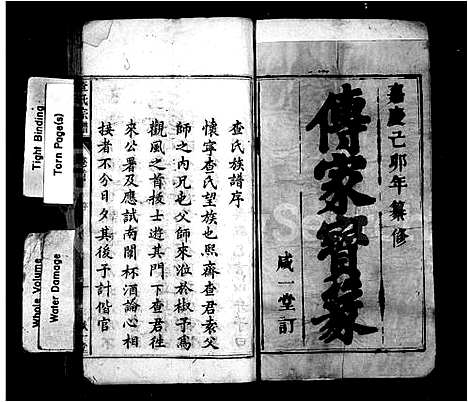 嘉慶己卯年纂修
傳家寶纂
咸一堂訂
查氏族譜序
懷寧查氏望族也熙齋查君素父
師之內兄也父師來涖於椒予為
觀風之首拔士遊其門下查君往
來公署及應試南闈杯酒論心相
接者不今日夕其後予計偕官
查氏宗譜
Tight Binding
Torn Page(s)
Whole Volume
Water Damage